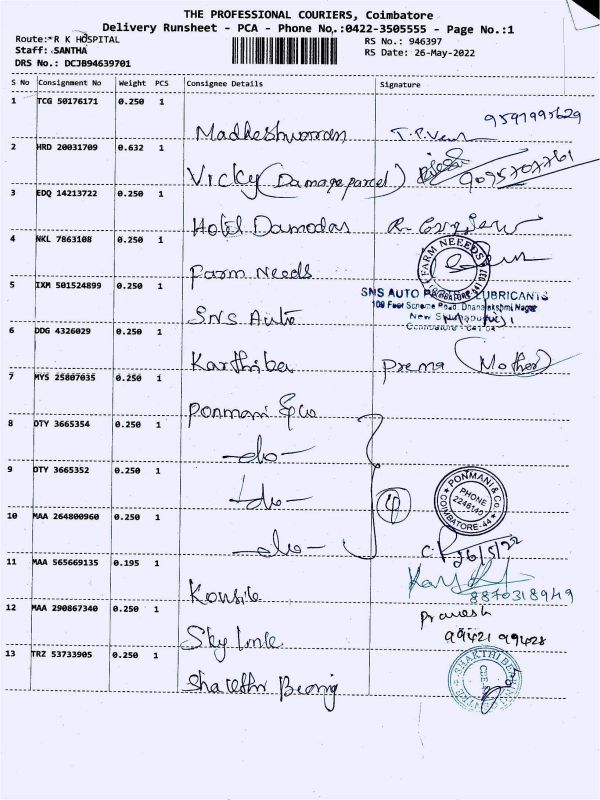 THE PROFESSIONAL COURIERS, Coimbatore
Delivery Runsheet - PCA - Phone No,:0422-3505555 - Page No.:1
Route:*R K HOSPITAL
RS No.: 946397
Staff: SANTHA
RS Date: 26-May-2022
DRS No.: DCJB94639701
S No Consignment No Weight PCS Consignee Details Signature
1 TCG 50176171 0.250 1
Madheshwaran 9591995629
2 HRD 20031709 0.632 1
Vicky (Damage parcel) 9095707761
3 EDQ 14213722 0.250 1
Hotel Damodas
4 NKL 7863108 0.250 1
Farm Needs
FARM NEEDS
5 IXM 501524899 0.250 1
SNS AUTO LUBRICANTS
100 Feet Scheme Road, Dhanalakshmi Nagar
SNS Auto
6 DDG 4326029 0.250 1
Karthika Prema (Mother)
7 MYS 25807035 0.250 1
Ponmani & Co
8 DTY 3665354 0.250 1
-do-
9 DTY 3665352 0.250 1
-do- 4
PONMANI & CO
PHONE
COIMBATORE-44
10 MAA 264800960 0.250 1
-do- 26/5/22
11 MAA 565669135 0.195 1
8870318949
12 MAA 290867340 0.250 1
Pravesh
99421 99428
13 TRZ 53733905 0.250 1